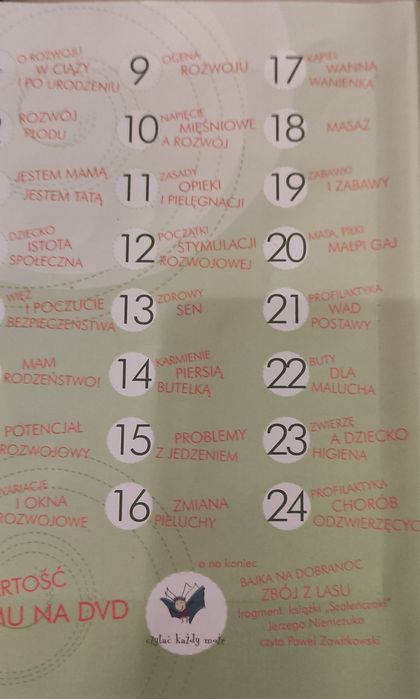 O ROZWOJU
W CIĄŻY
I PO URODZENIU
ROZWÓJ
PŁODU
JESTEM MAMĄ
JESTEM TATĄ
DZIECKO
ISTOTA
SPOŁECZNA
WIĘŹ
I POCZUCIE
BEZPIECZEŃSTWA
MAM
RODZEŃSTWO!
POTENCJAŁ
ROZWOJOWY
WARIACJE
I OKNA
ROZWOJOWE
9 OCENA
ROZWOJU
10 NAPIĘCIE
MIĘŚNIOWE
A ROZWÓJ
11 ZASADY
OPIEKI
I PIELĘGNACJI
12 POCZĄTKI
STYMULACJI
ROZWOJOWEJ
13 ZDROWY
SEN
14 KARMIENIE
PIERSIĄ
BUTELKĄ
15 PROBLEMY
Z JEDZENIEM
16 ZMIANA
PIELUCHY
17 KĄPIEL
WANNA
WANIENKA
18 MASAŻ
19 ZABAWKI
I ZABAWY
20 MATA, PIŁKI
MAŁPI GAJ
21 PROFILAKTYKA
WAD
POSTAWY
22 BUTY
DLA
MALUCHA
23 ZWIERZĘ
A DZIECKO
HIGIENA
24 PROFILAKTYKA
CHORÓB
ODZWIERZĘCYC
ARTOŚĆ
MU NA DVD
czytać każdy może
a na koniec
BAJKA NA DOBRANOC
ZBÓJ Z LASU
fragment książki „Szaleńczaki"
Jerzego Niemczuka
czyta Paweł Zawitkowski